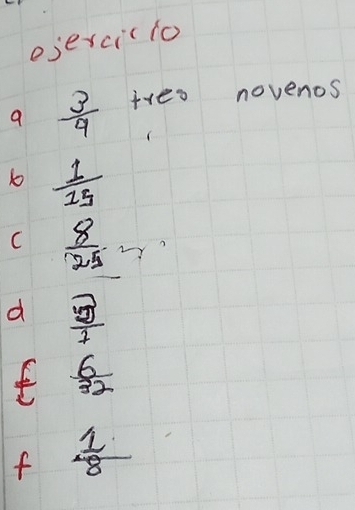 ejercicio
a 3/9 tres novenos
b 1/15
c 8/25
d /7
6/32
f 1/8